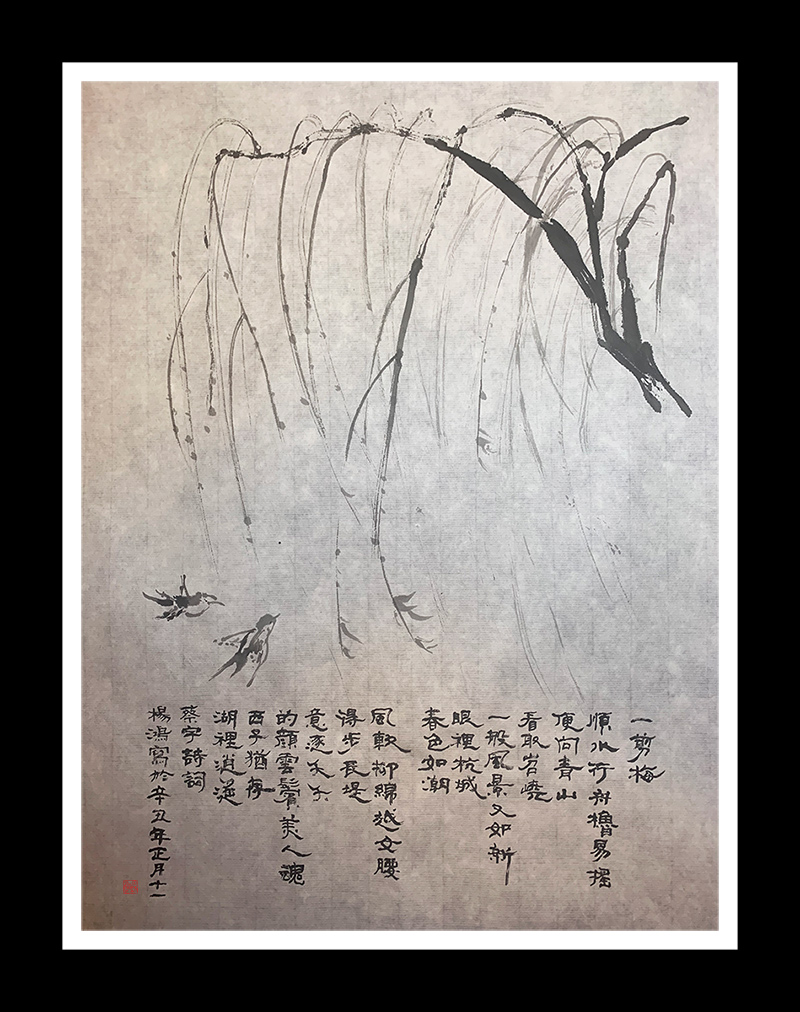 一剪梅
順水行舟櫓易搖
便向青山
看取岧嶢
一般風景又如新
眼裡杭城
春色如潮
風軟柳綿越女腰
得步長堤
意逐夭夭
的顏雲鬢美人魂
西子猶存
湖裡逍遙
蔡宇詩詞
楊鴻寫於辛丑年正月十一